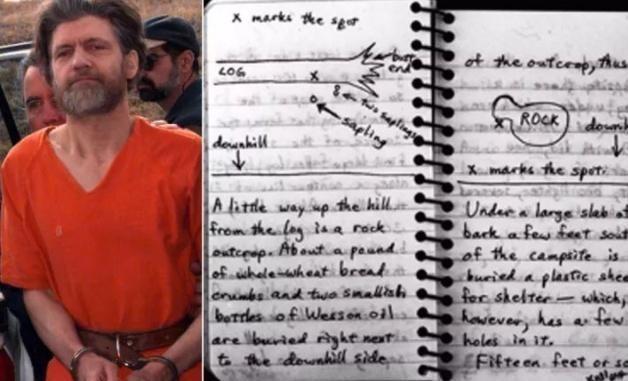 x marks the spot
butt
end
LOG
x
two saplings
sapling
downhill
A little way up the hill
from the log is a rock
outcrop. About a pound
of whole-wheat bread
crumbs and two smallish
bottles of Wesson oil
are buried right next
to the downhill side
of the outcrop, thus
x
ROCK
x marks the spot.
Under a large slab
back a few feet
of the campsite is
buried a plastic
for shelter — which,
however, has a few
holes in it.
Fifteen feet or so